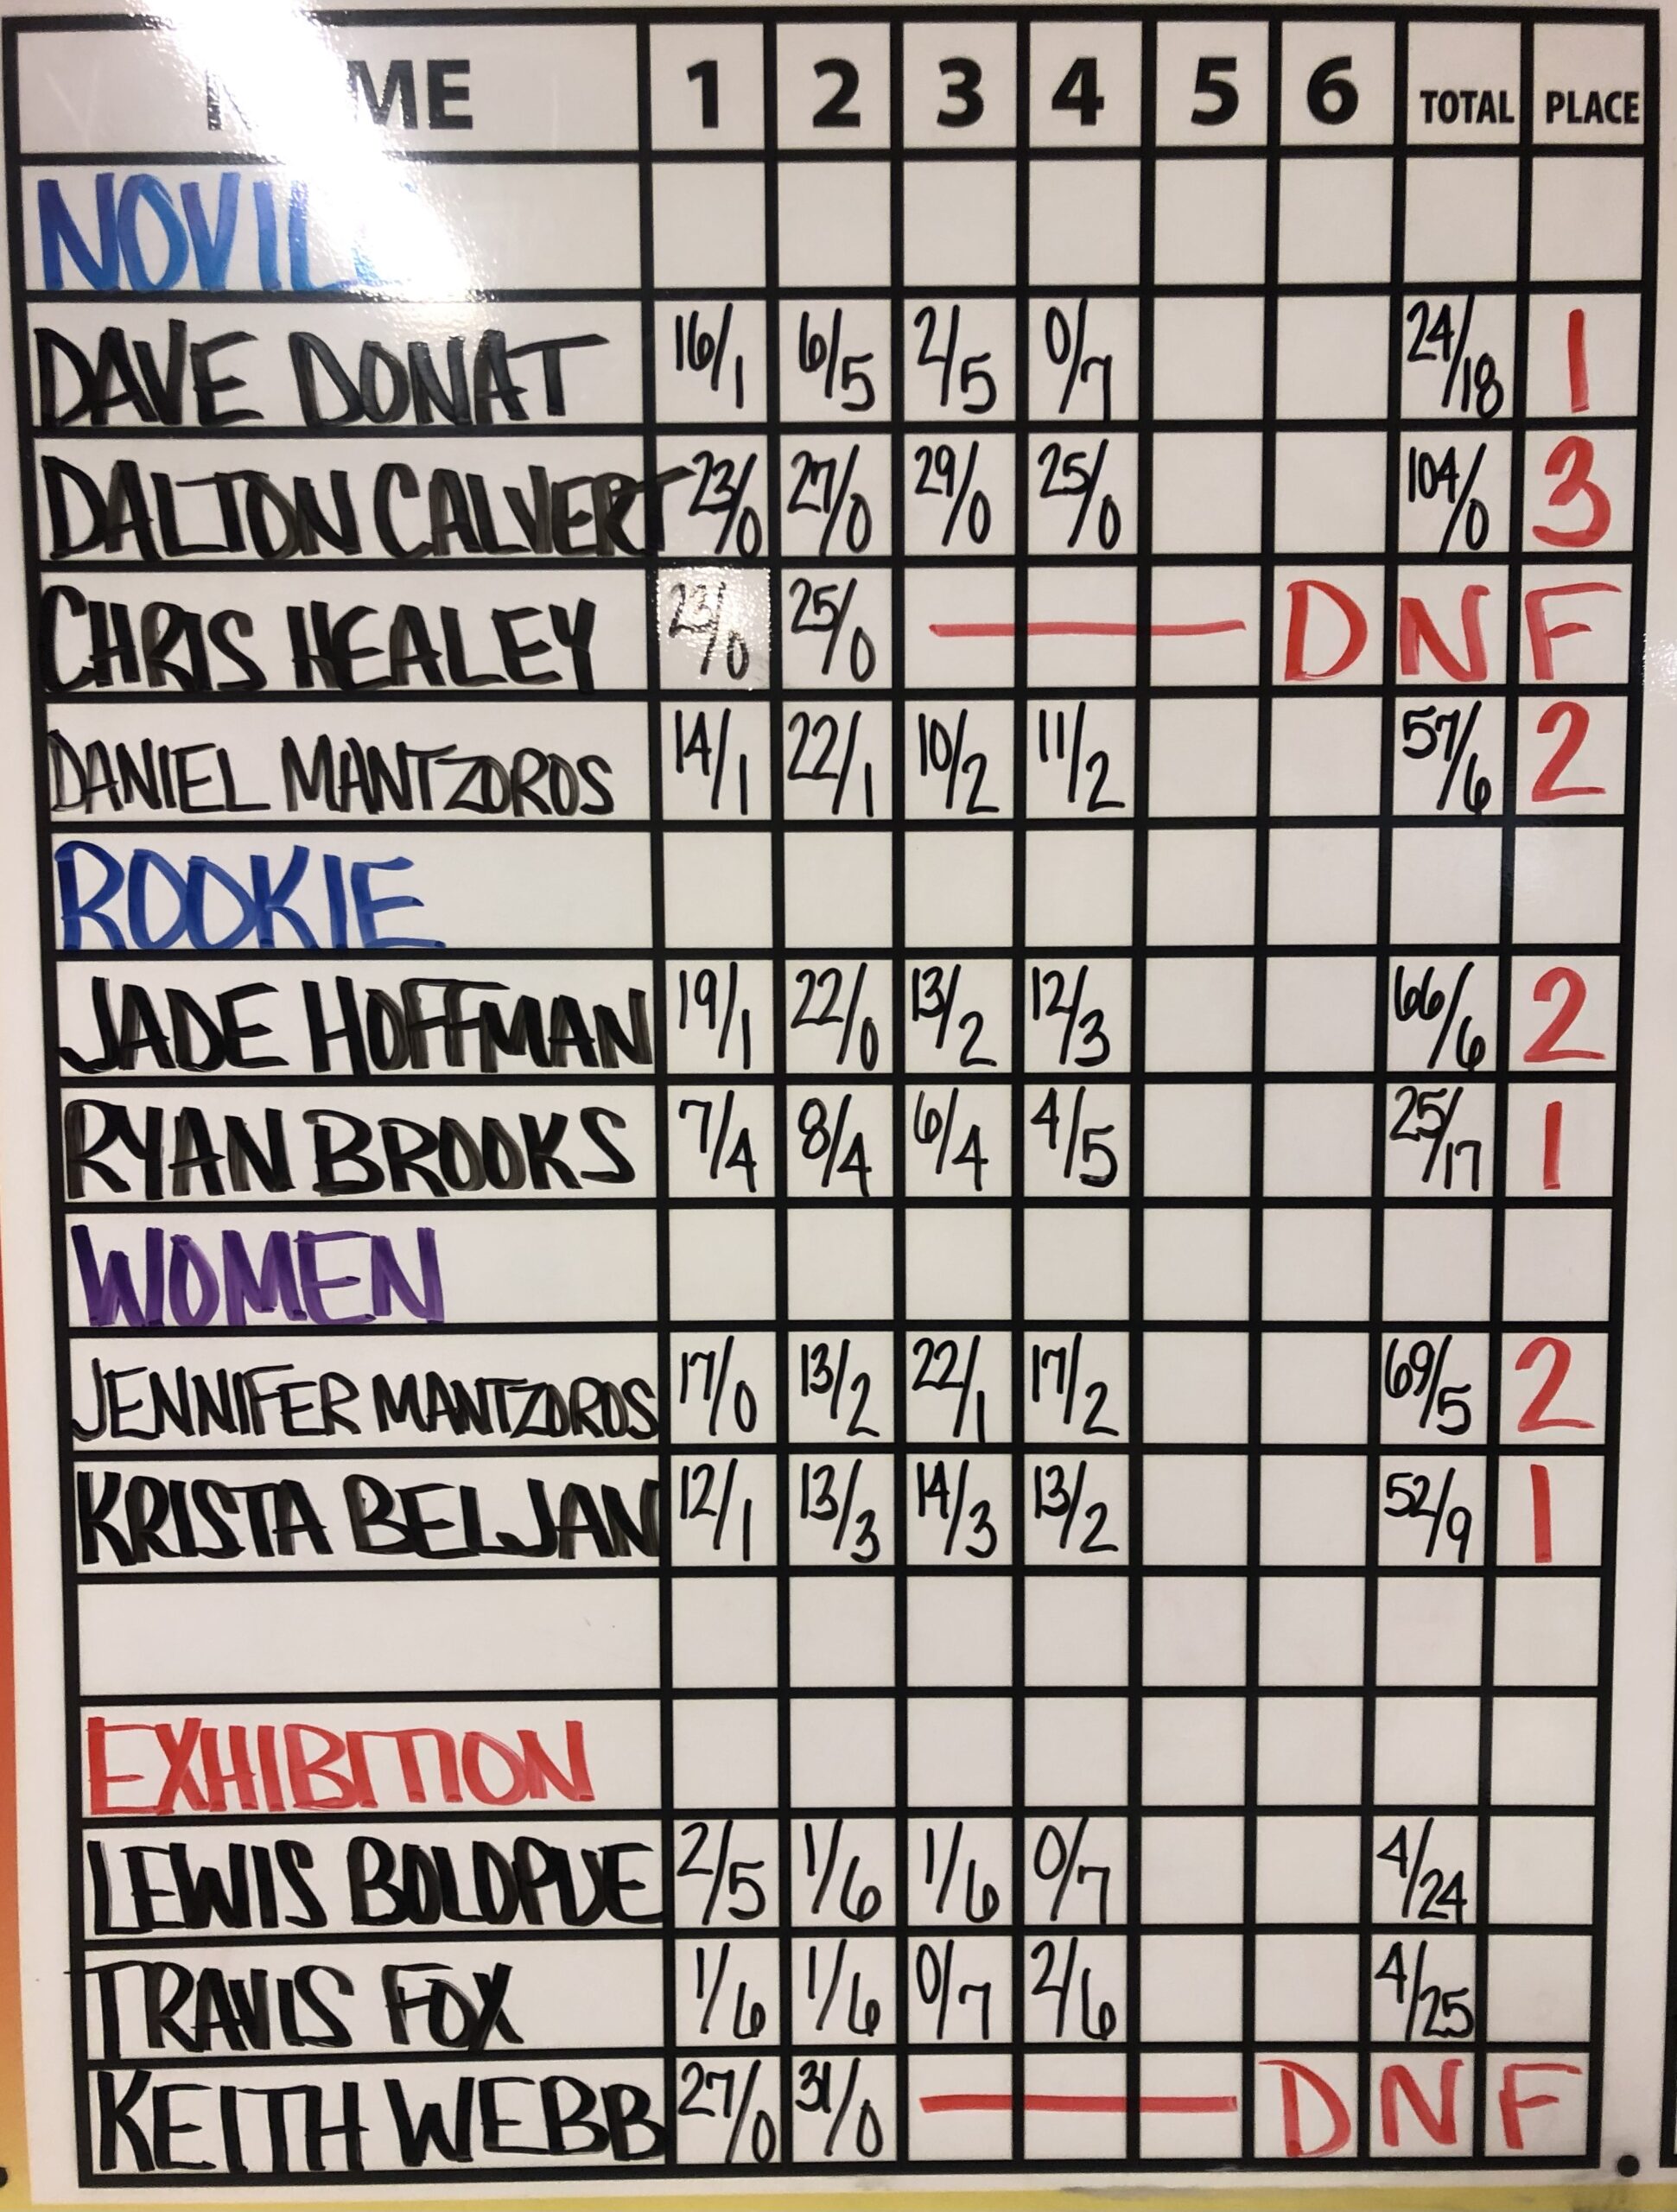 NAME 1 2 3 4 5 6 TOTAL PLACE
DAVE DONAT 16/1 6/5 2/5 0/7 24/18 1
DALTON CALVERT 23/0 27/0 29/0 25/0 104/0 3
CHRIS HEALEY 25/0 — DNF
DANIEL MANTZOROS 14/1 22/1 10/2 11/2 57/6 2
ROOKIE
JADE HOFFMAN 19/1 22/0 13/2 12/3 66/6 2
RYAN BROOKS 7/4 8/4 6/4 4/5 25/17 1
WOMEN
JENNIFER MANTZOROS 17/0 13/2 22/1 17/2 69/5 2
KRISTA BELJAN 12/1 13/3 14/3 13/2 52/9 1
EXHIBITION
LEWIS BOLOPUE 2/5 1/6 1/6 0/7 4/24
TRAVIS FOX 1/6 1/6 0/7 2/6 4/25
KEITH WEBB 27/0 31/0 — DNF